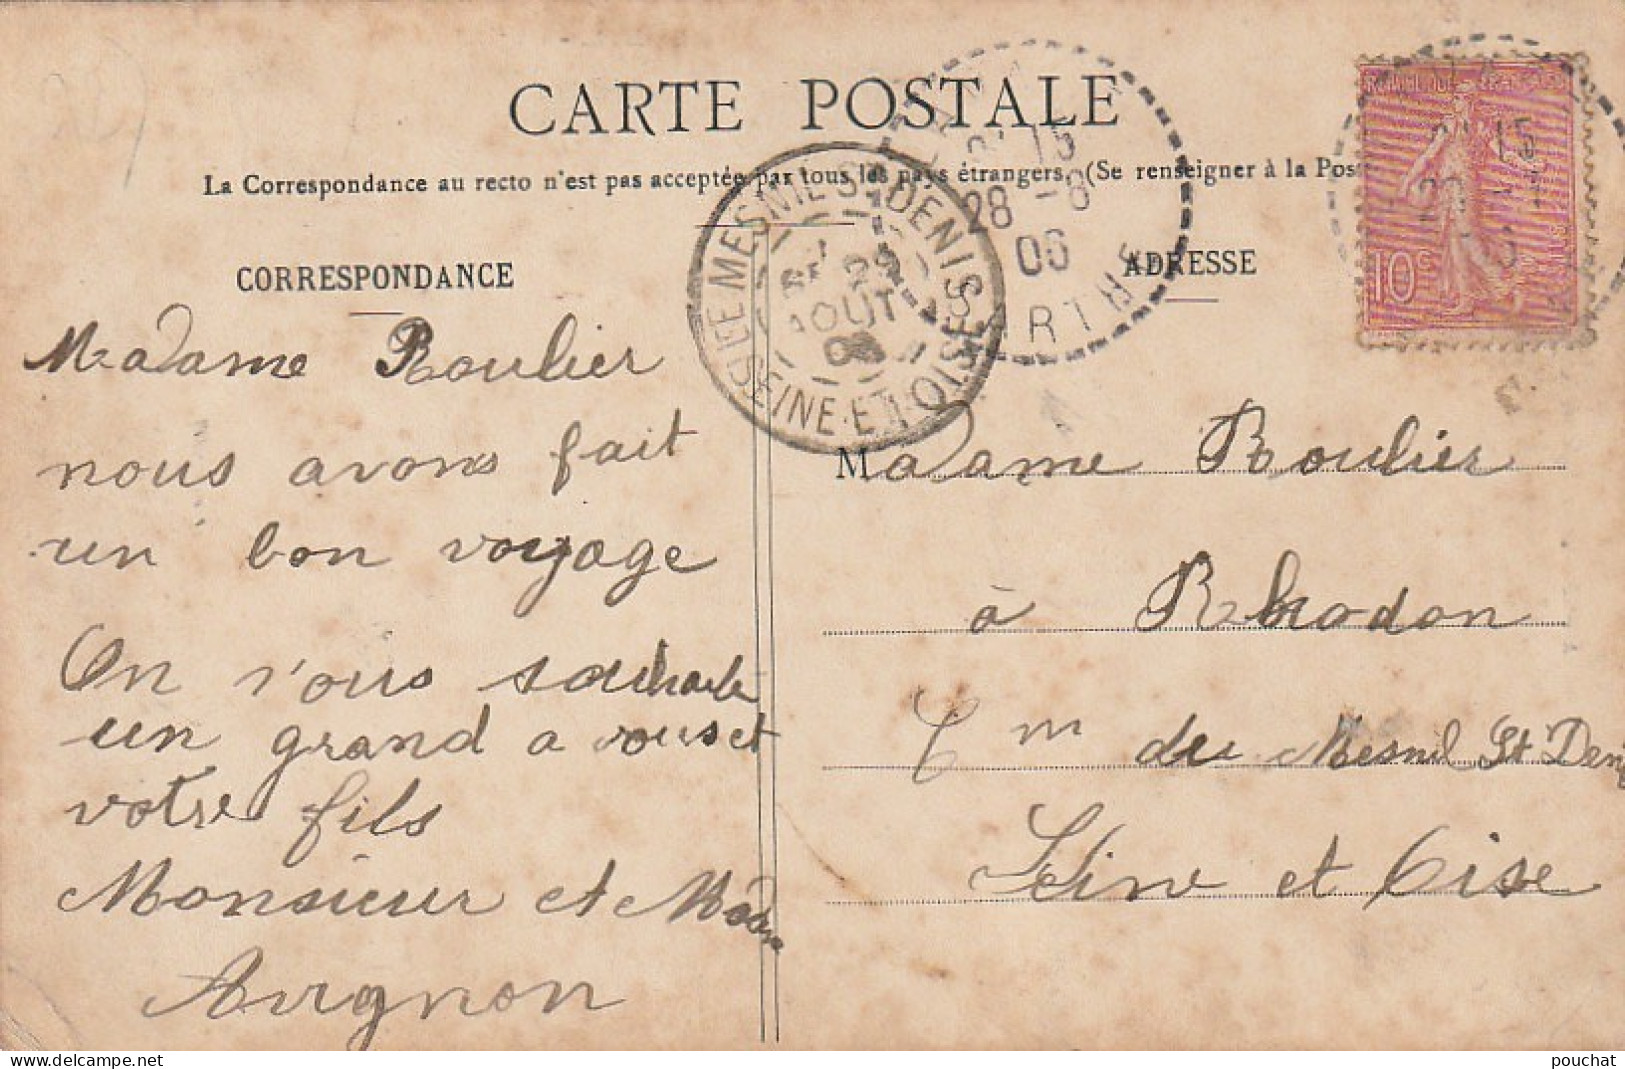 CARTE POSTALE
La Correspondance au recto n'est pas acceptée par tous les pays étrangers. (Se renseigner à la Pos
CORRESPONDANCE
ADRESSE
REPUBLIQUE FRANÇAISE
10c
15
28 - 8
06
LE MESNIL ST DENIS
29
AOUT
06
SEINE-ET-OISE
Madame Roulier
nous avons fait
un bon voyage
On vous souhaite
un grand a vous et
votre fils
Monsieur et Madame
Avignon
Madame Roulier
à Rhodon
Cm du Mesnil St Denis
Seine et Oise
delcampe.net
pouchat